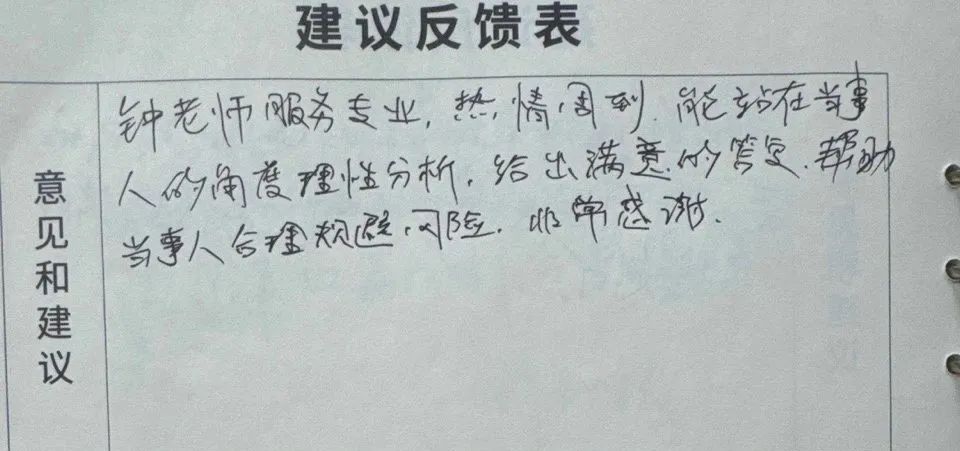 建议反馈表
意见和建议
钟老师服务专业,热情周到.能站在当事
人的角度理性分析,给出满意的答复.帮助
当事人合理规避风险.非常感谢.